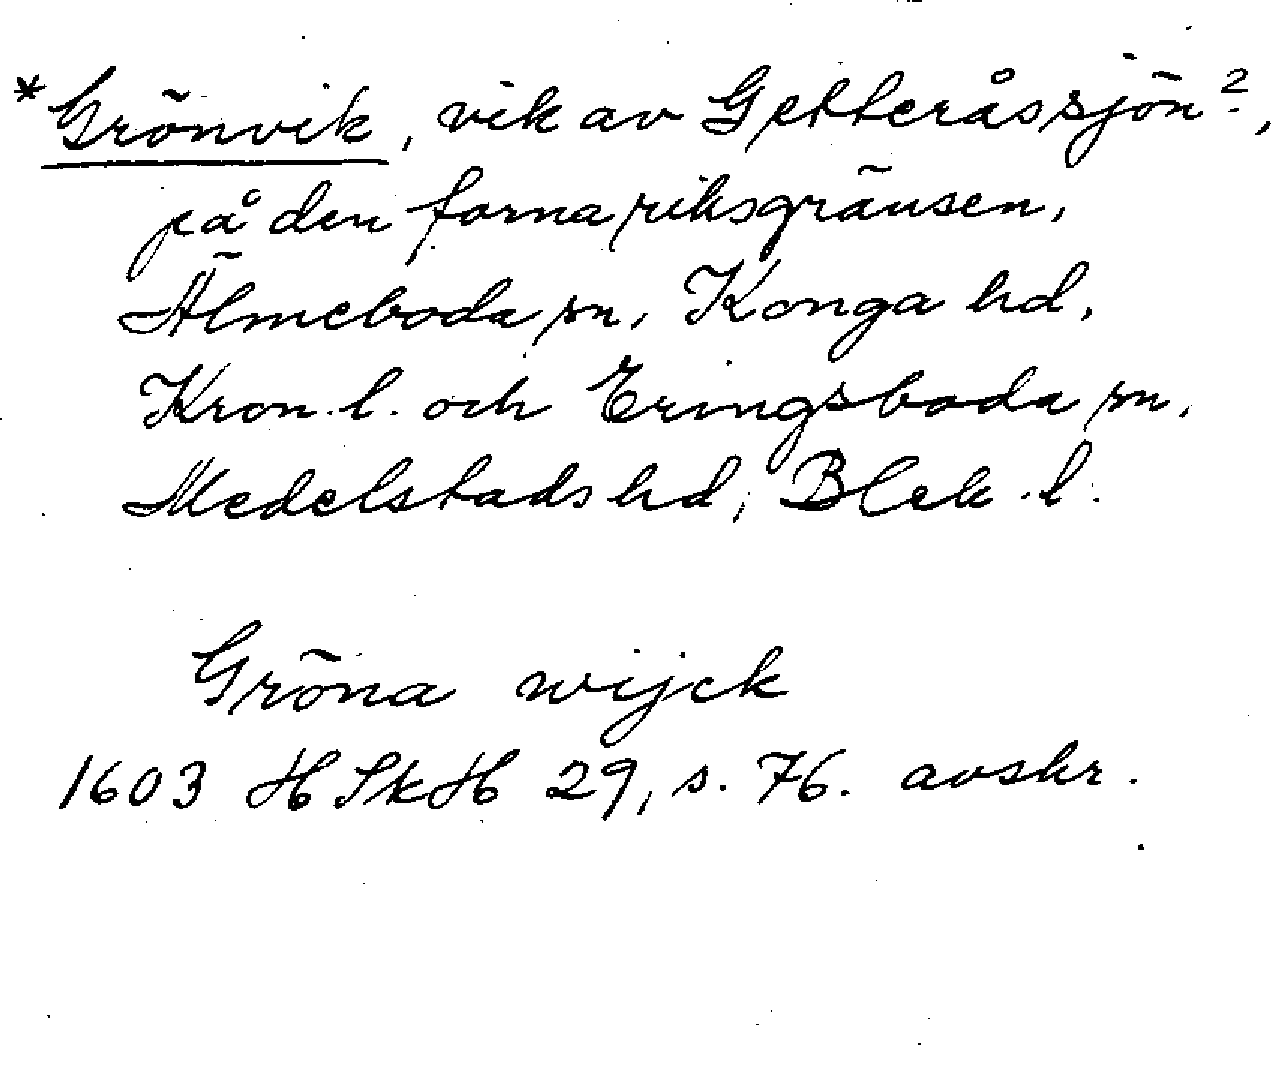 *Grönvik, vik av Getteråssjön?,
på den forna riksgränsen,
Älmeboda sn, Konga hd,
Kron. l. och Eringsboda sn,
Medelstads hd, Blek. l.
Gröna wijck
1603 HSkH 29, s. 76. avskr.